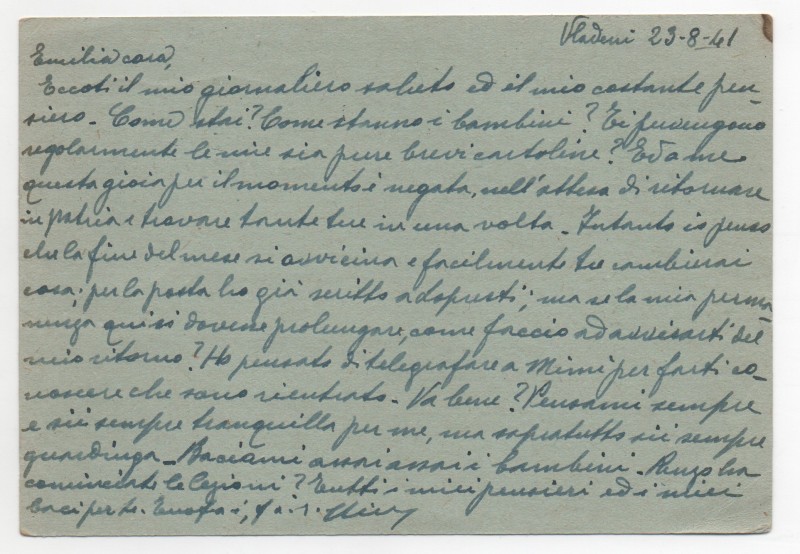 Vladeni 23-8-41
Emilia cara,
Eccoti il mio giornaliero saluto ed il mio costante pen-
siero - Come stai? Come stanno i bambini? Ti pervengono
regolarmente le mie sia pure brevi cartoline? Ed a me
questa gioia per il momento è negata, nell'attesa di ritornare
in patria e trovare tante tue in una volta - Intanto io penso
che la fine del mese si avvicina e facilmente tu cambierai
casa: per la posta ho già scritto a Dopresti; ma se la mia perma-
nenza qui si dovesse prolungare, come faccio ad avvisarti del
mio ritorno? Ho pensato di telegrafare a Mimi per farti co-
noscere che sono rientrato - Va bene? Pensami sempre
e sii sempre tranquilla per me, ma sopratutto sii sempre
guardinga - Baciami assai assai i bambini - Renzo ha
cominciato le lezioni? Tutti i miei pensieri ed i miei
baci per te.